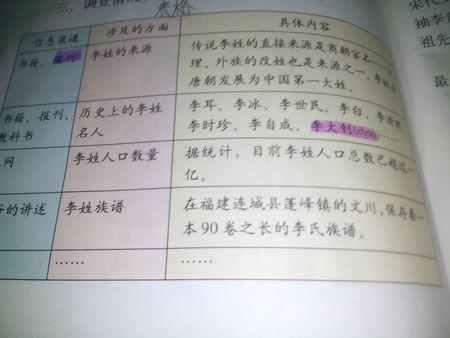 三、调查情况
表格
信息渠道 涉及的方面 具体内容
书籍、报刊 李姓的来源 传说李姓的直接来源是商朝官名
理。外族的改姓也是来源之一，李姓在
唐朝发展为中国第一大姓。
书籍、报刊、 历史上的李姓 李耳、李冰、李世民、李白、李清照
教科书 名人 李时珍、李自成、李大钊(zhāo)……
网 李姓人口数量 据统计，目前李姓人口总数已超过一
亿。
的讲述 李姓族谱 在福建连城县莲峰镇的文川，保存着一
本90卷之长的李氏族谱。
…… ……
宋代
袖李
祖先
最